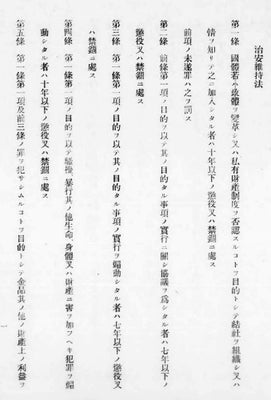 治安維持法
第一條 國體若ハ政體ヲ變革シ又ハ私有財產制度ヲ否認スルコトヲ目的トシテ結社ヲ組織シ又ハ
情ヲ知リテ之ニ加入シタル者ハ十年以下ノ懲役又ハ禁錮ニ處ス
前項ノ未遂罪ハ之ヲ罰ス
第二條 前條第一項ノ目的ヲ以テ其ノ目的タル事項ノ實行ニ關シ協議ヲ爲シタル者ハ七年以下ノ
懲役又ハ禁錮ニ處ス
第三條 第一條第一項ノ目的ヲ以テ其ノ目的タル事項ノ實行ヲ煽動シタル者ハ七年以下ノ懲役又
ハ禁錮ニ處ス
第四條 第一條第一項ノ目的ヲ以テ騷擾、暴行其ノ他生命、身體又ハ財產ニ害ヲ加フヘキ犯罪ヲ煽
動シタル者ハ十年以下ノ懲役又ハ禁錮ニ處ス
第五條 第一條第一項及前三條ノ罪ヲ犯サシムルコトヲ目的トシテ金品其ノ他ノ財產上ノ利益ヲ